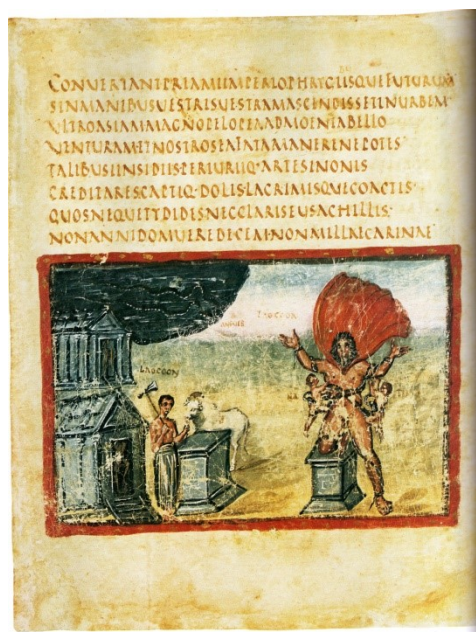 CONVERTANTPRIAMIIMPERIOPHRYGIISQUEFUTURUM
SINMANIBUSUESTRISUESTRAMASCENDISSETINURBEM
ULTROASIAMMAGNOPELOPEAADMOENIABELLO
VENTURAMETNOSTROSEAFATAMANERENEPOTES
TALIBUSINSIDIISPERIURIQ·ARTESINONIS
CREDITARESCAPTIQ·DOLISLACRIMISQUECOACTIS
QUOSNEQUETYDIDESNECCLARISEUSACHILLIS·
NONANNIDOMUEREDECEMNONMILLECARINAE
LAOCOON
LAOCOON